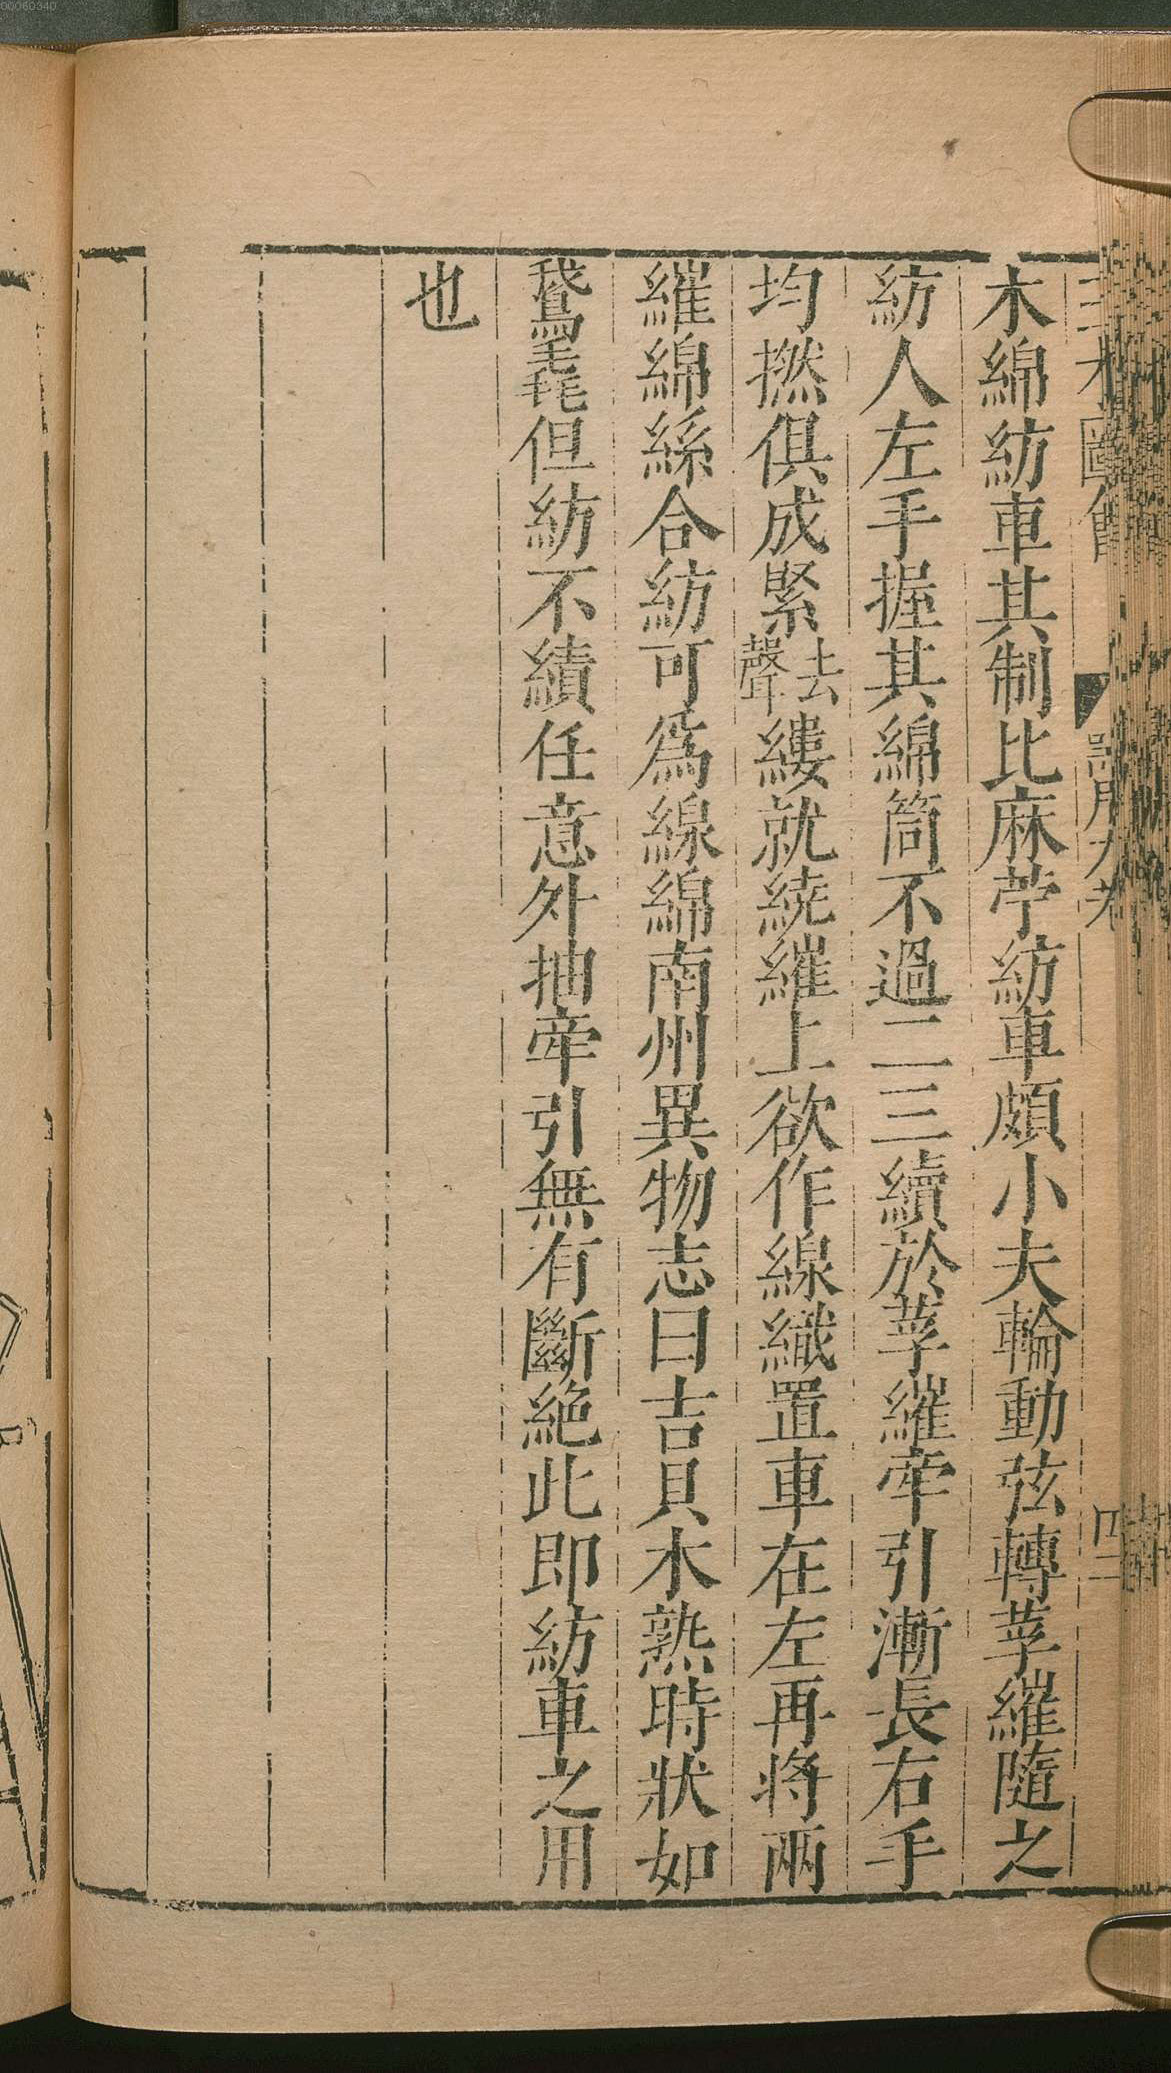 00060340
三才圖會 器用九卷 四十三
木綿紡車其制比麻苧紡車頗小夫輪動弦轉莩繀隨之
紡人左手握其綿筒不過二三續於莩繀牽引漸長右手
均撚俱成緊去聲縷就繞繀上欲作線織置車在左再將兩
繀綿絲合紡可為線綿南州異物志曰吉貝木熟時狀如
鵞毳但紡不績任意外抽牽引無有斷絶此即紡車之用
也